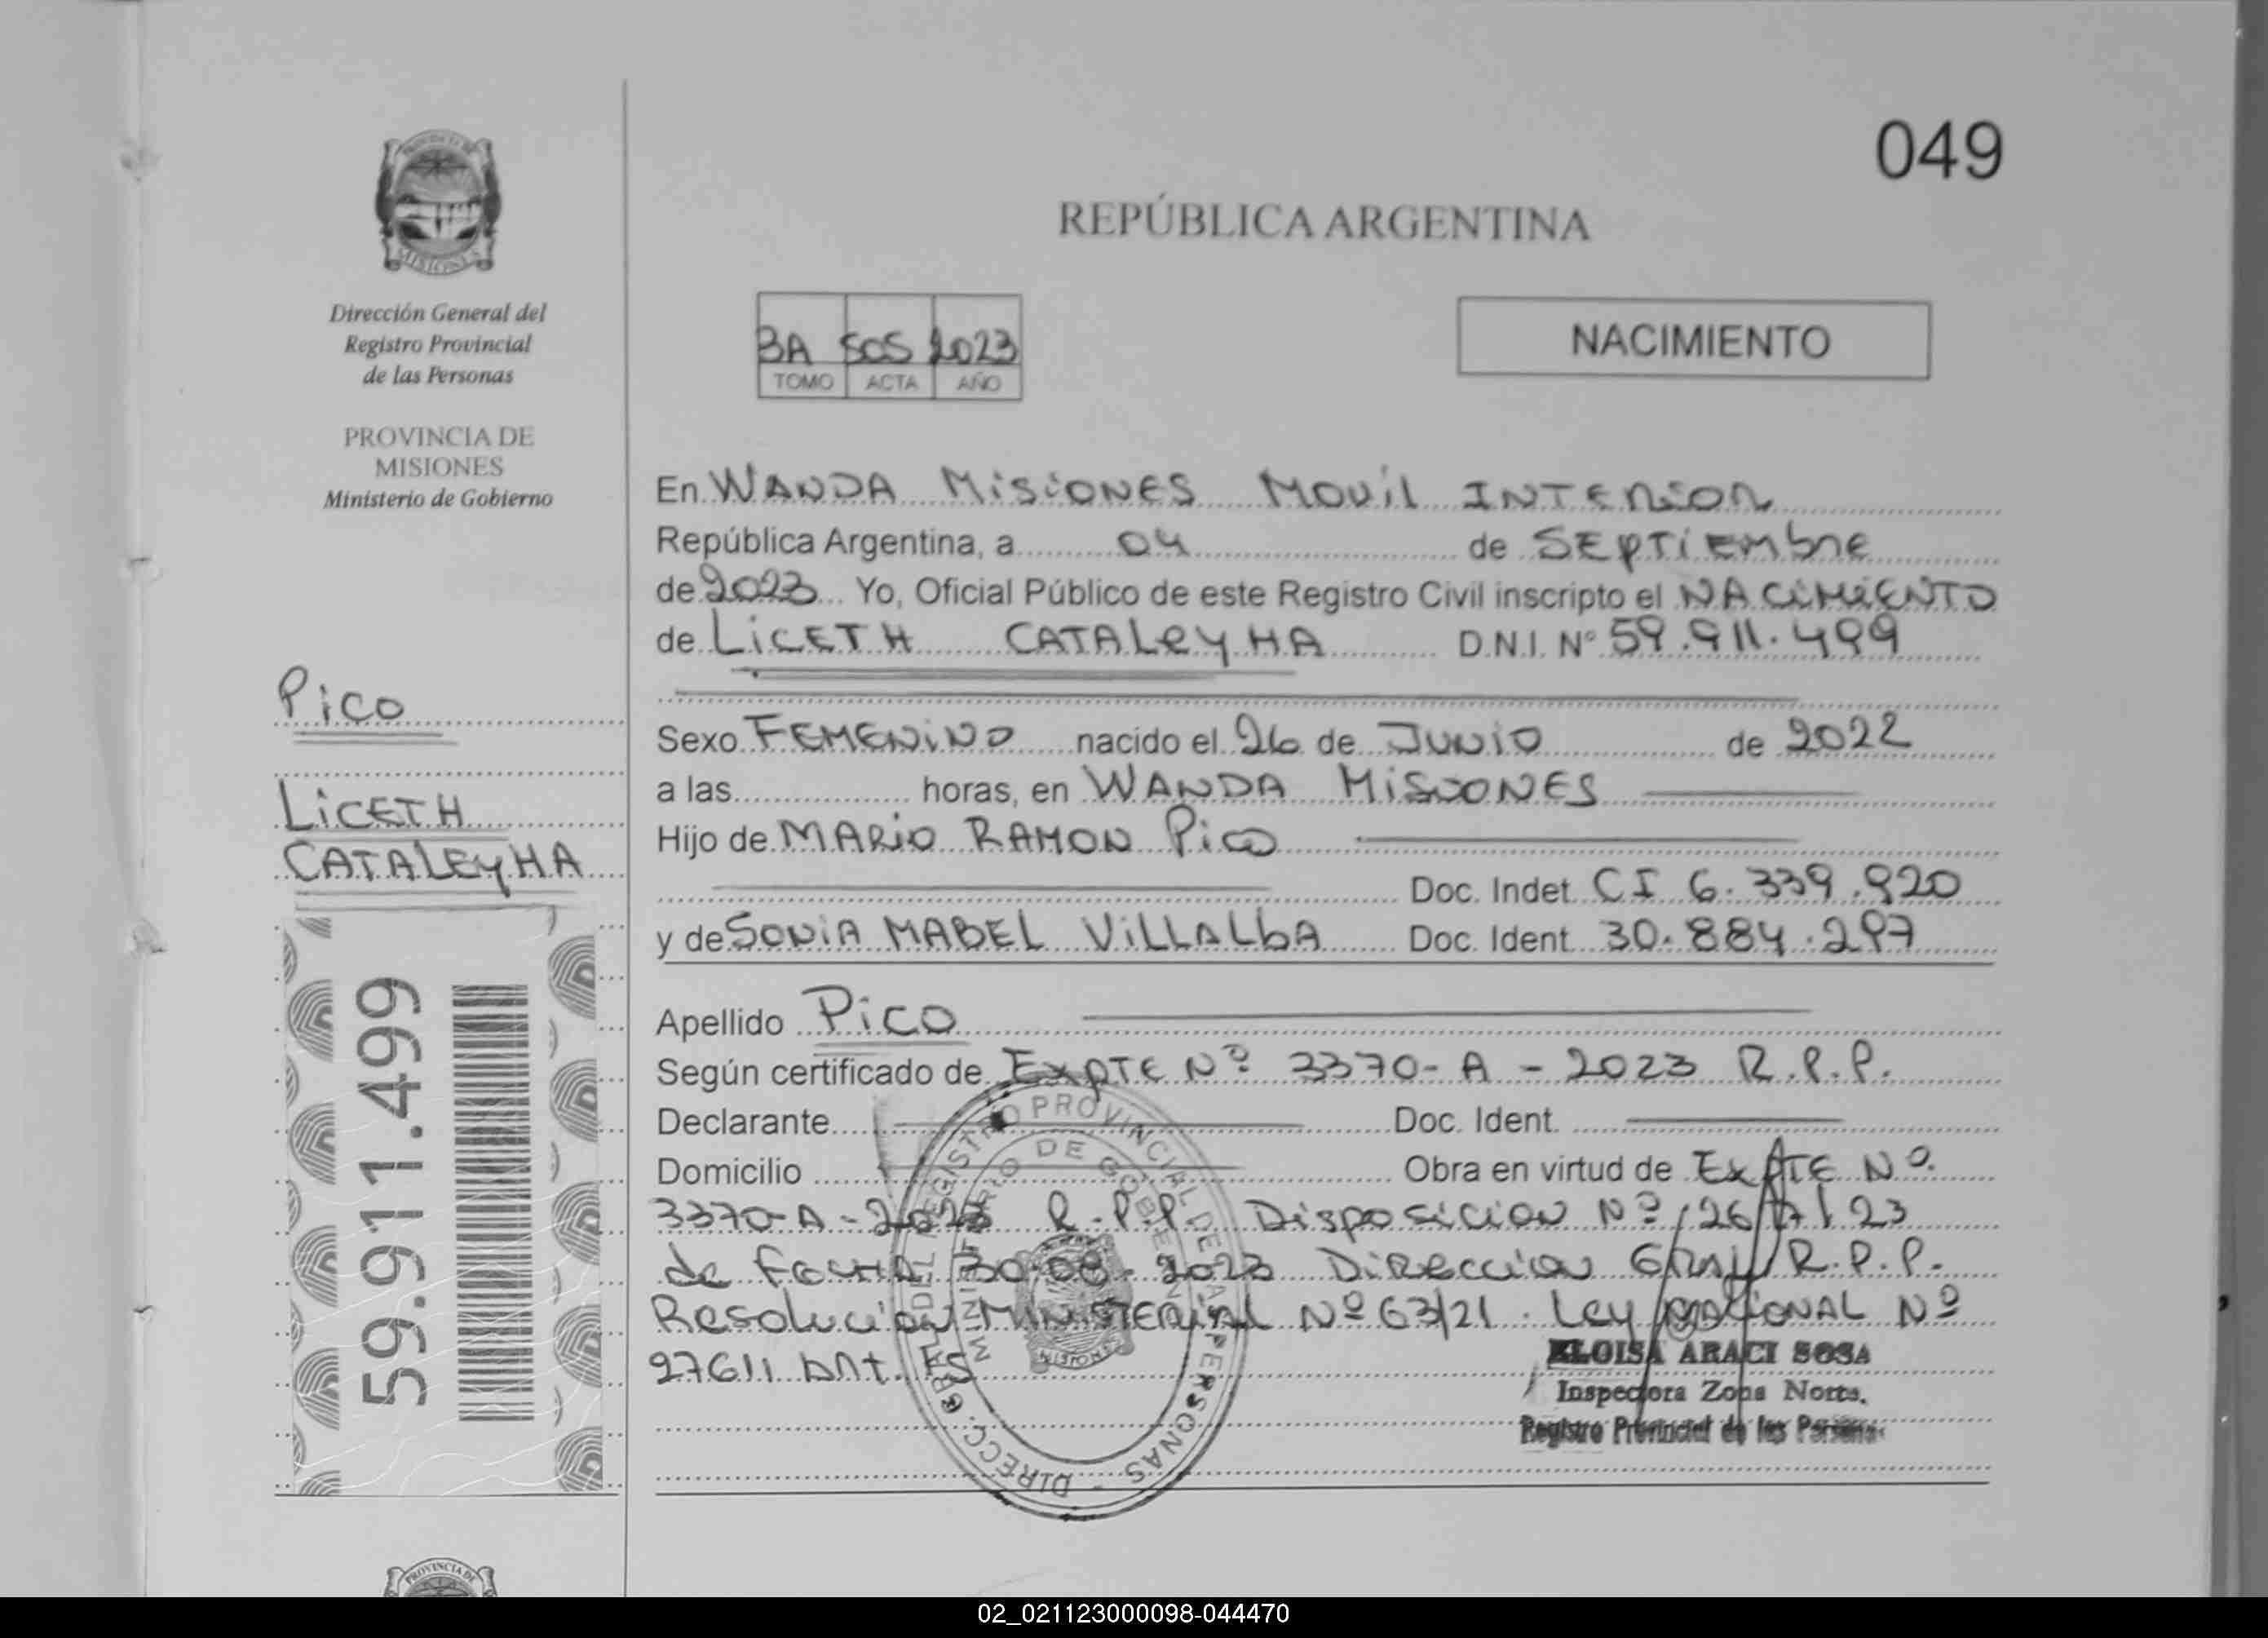 049
REPÚBLICA ARGENTINA
PROVINCIA DE
MISIONES
Dirección General del
Registro Provincial
de las Personas
PROVINCIA DE
MISIONES
Ministerio de Gobierno
3A 505 2023
TOMO ACTA AÑO
NACIMIENTO
En WANDA MISIONES MOVIL INTERIOR
República Argentina, a 04 de SEPTIEMbre
de 2023 Yo, Oficial Público de este Registro Civil inscripto el NACIMIENTO
de LICETH CATALEYHA D.N.I. N° 59.911.499
Sexo FEMENINO nacido el 26 de JUNIO de 2022
a las horas, en WANDA MISIONES
Hijo de MARIO RAMON PICO
Doc. Indet. CI 6.339.920
y de SONIA MABEL VILLALbA Doc. Ident. 30.884.297
Apellido PICO
Según certificado de EXPTE Nº 3370-A-2023 R.P.P.
Declarante Doc. Ident.
Domicilio Obra en virtud de EXPTE Nº
3370-A-2023 R.P.P. Disposicion Nº
de Fecha 30-08-2023 Direccion GRAL R.P.P.
Resolucion MINISTERIAL Nº 63/21. Ley NACIONAL Nº
27611 Art.
ELOISA ARACI SOSA
Inspectora Zona Norte.
Registro Provincial de las Personas
DIRECC. GRAL DEL REGISTRO PROVINCIAL DE LAS PERSONAS
MINISTERIO DE GOBIERNO
MISIONES
Pico
LICETH
CATALEYHA
59.911.499
PROVINCIA DE
02_021123000098-044470